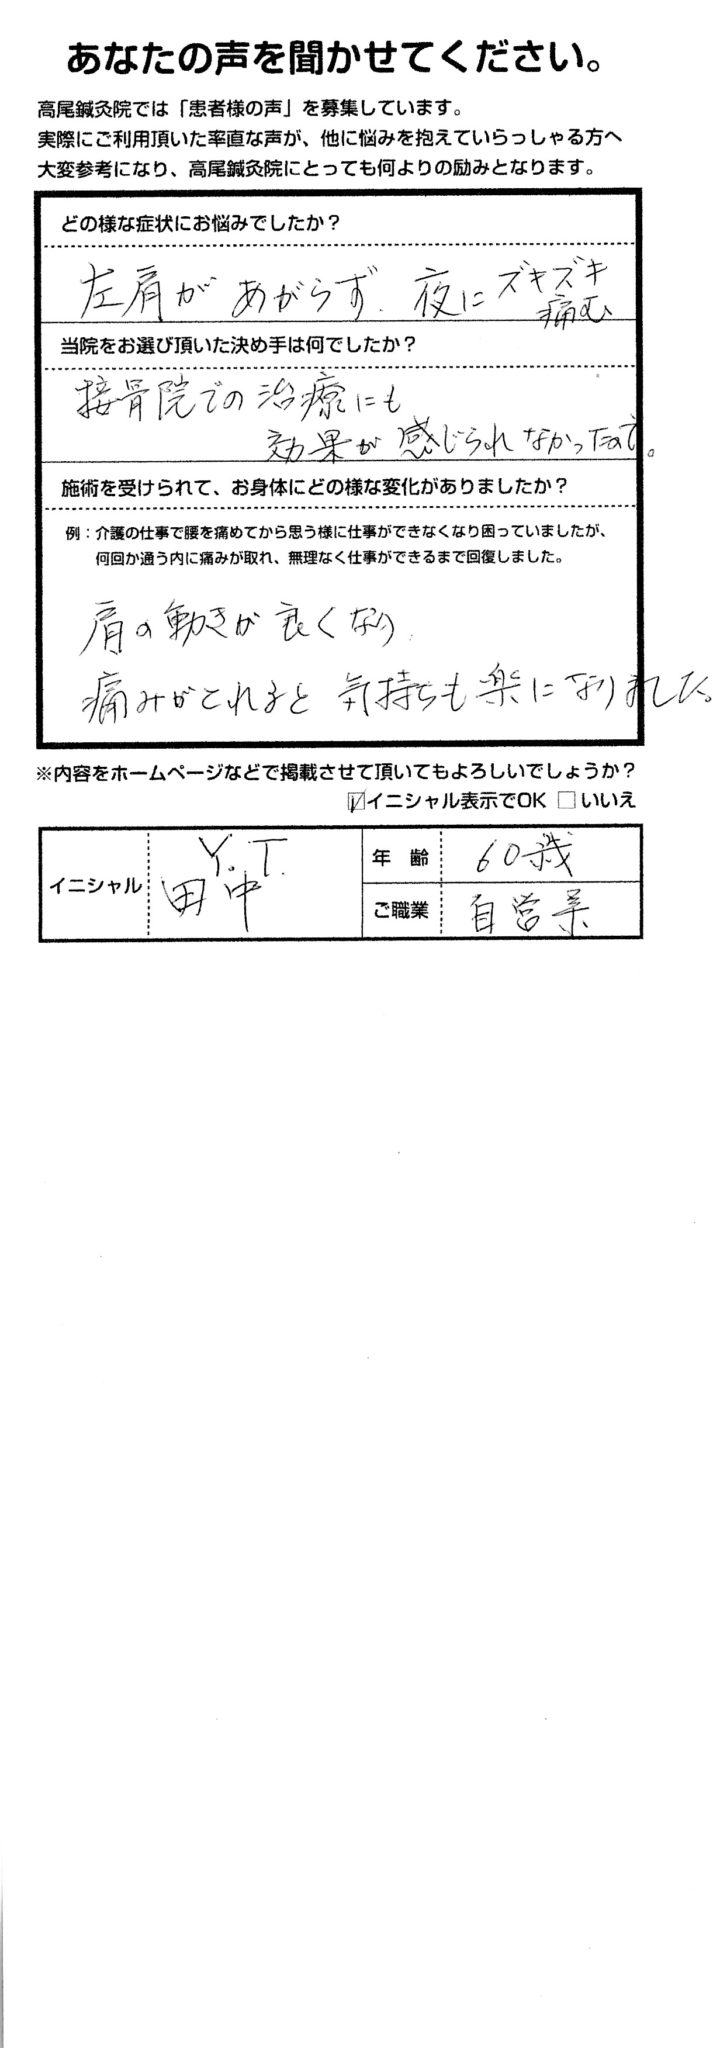 あなたの声を聞かせてください。
高尾鍼灸院では「患者様の声」を募集しています。
実際にご利用頂いた率直な声が、他に悩みを抱えていらっしゃる方へ
大変参考になり、高尾鍼灸院にとっても何よりの励みとなります。
どの様な症状にお悩みでしたか？
左肩が あがらず. 夜に ズキズキ
痛む
当院をお選び頂いた決め手は何でしたか？
接骨院での治療にも
効果が 感じられ なかったので。
施術を受けられて、お身体にどの様な変化がありましたか？
例：介護の仕事で腰を痛めてから思う様に仕事ができなくなり困っていましたが、
何回か通う内に痛みが取れ、無理なく仕事ができるまで回復しました。
肩の動きが 良くなり.
痛みがとれると 気持ちも楽になりました。
※内容をホームページなどで掲載させて頂いてもよろしいでしょうか？
☑イニシャル表示でOK □いいえ
イニシャル
Y. T.
田中
年 齢
60歳
ご職業
自営業